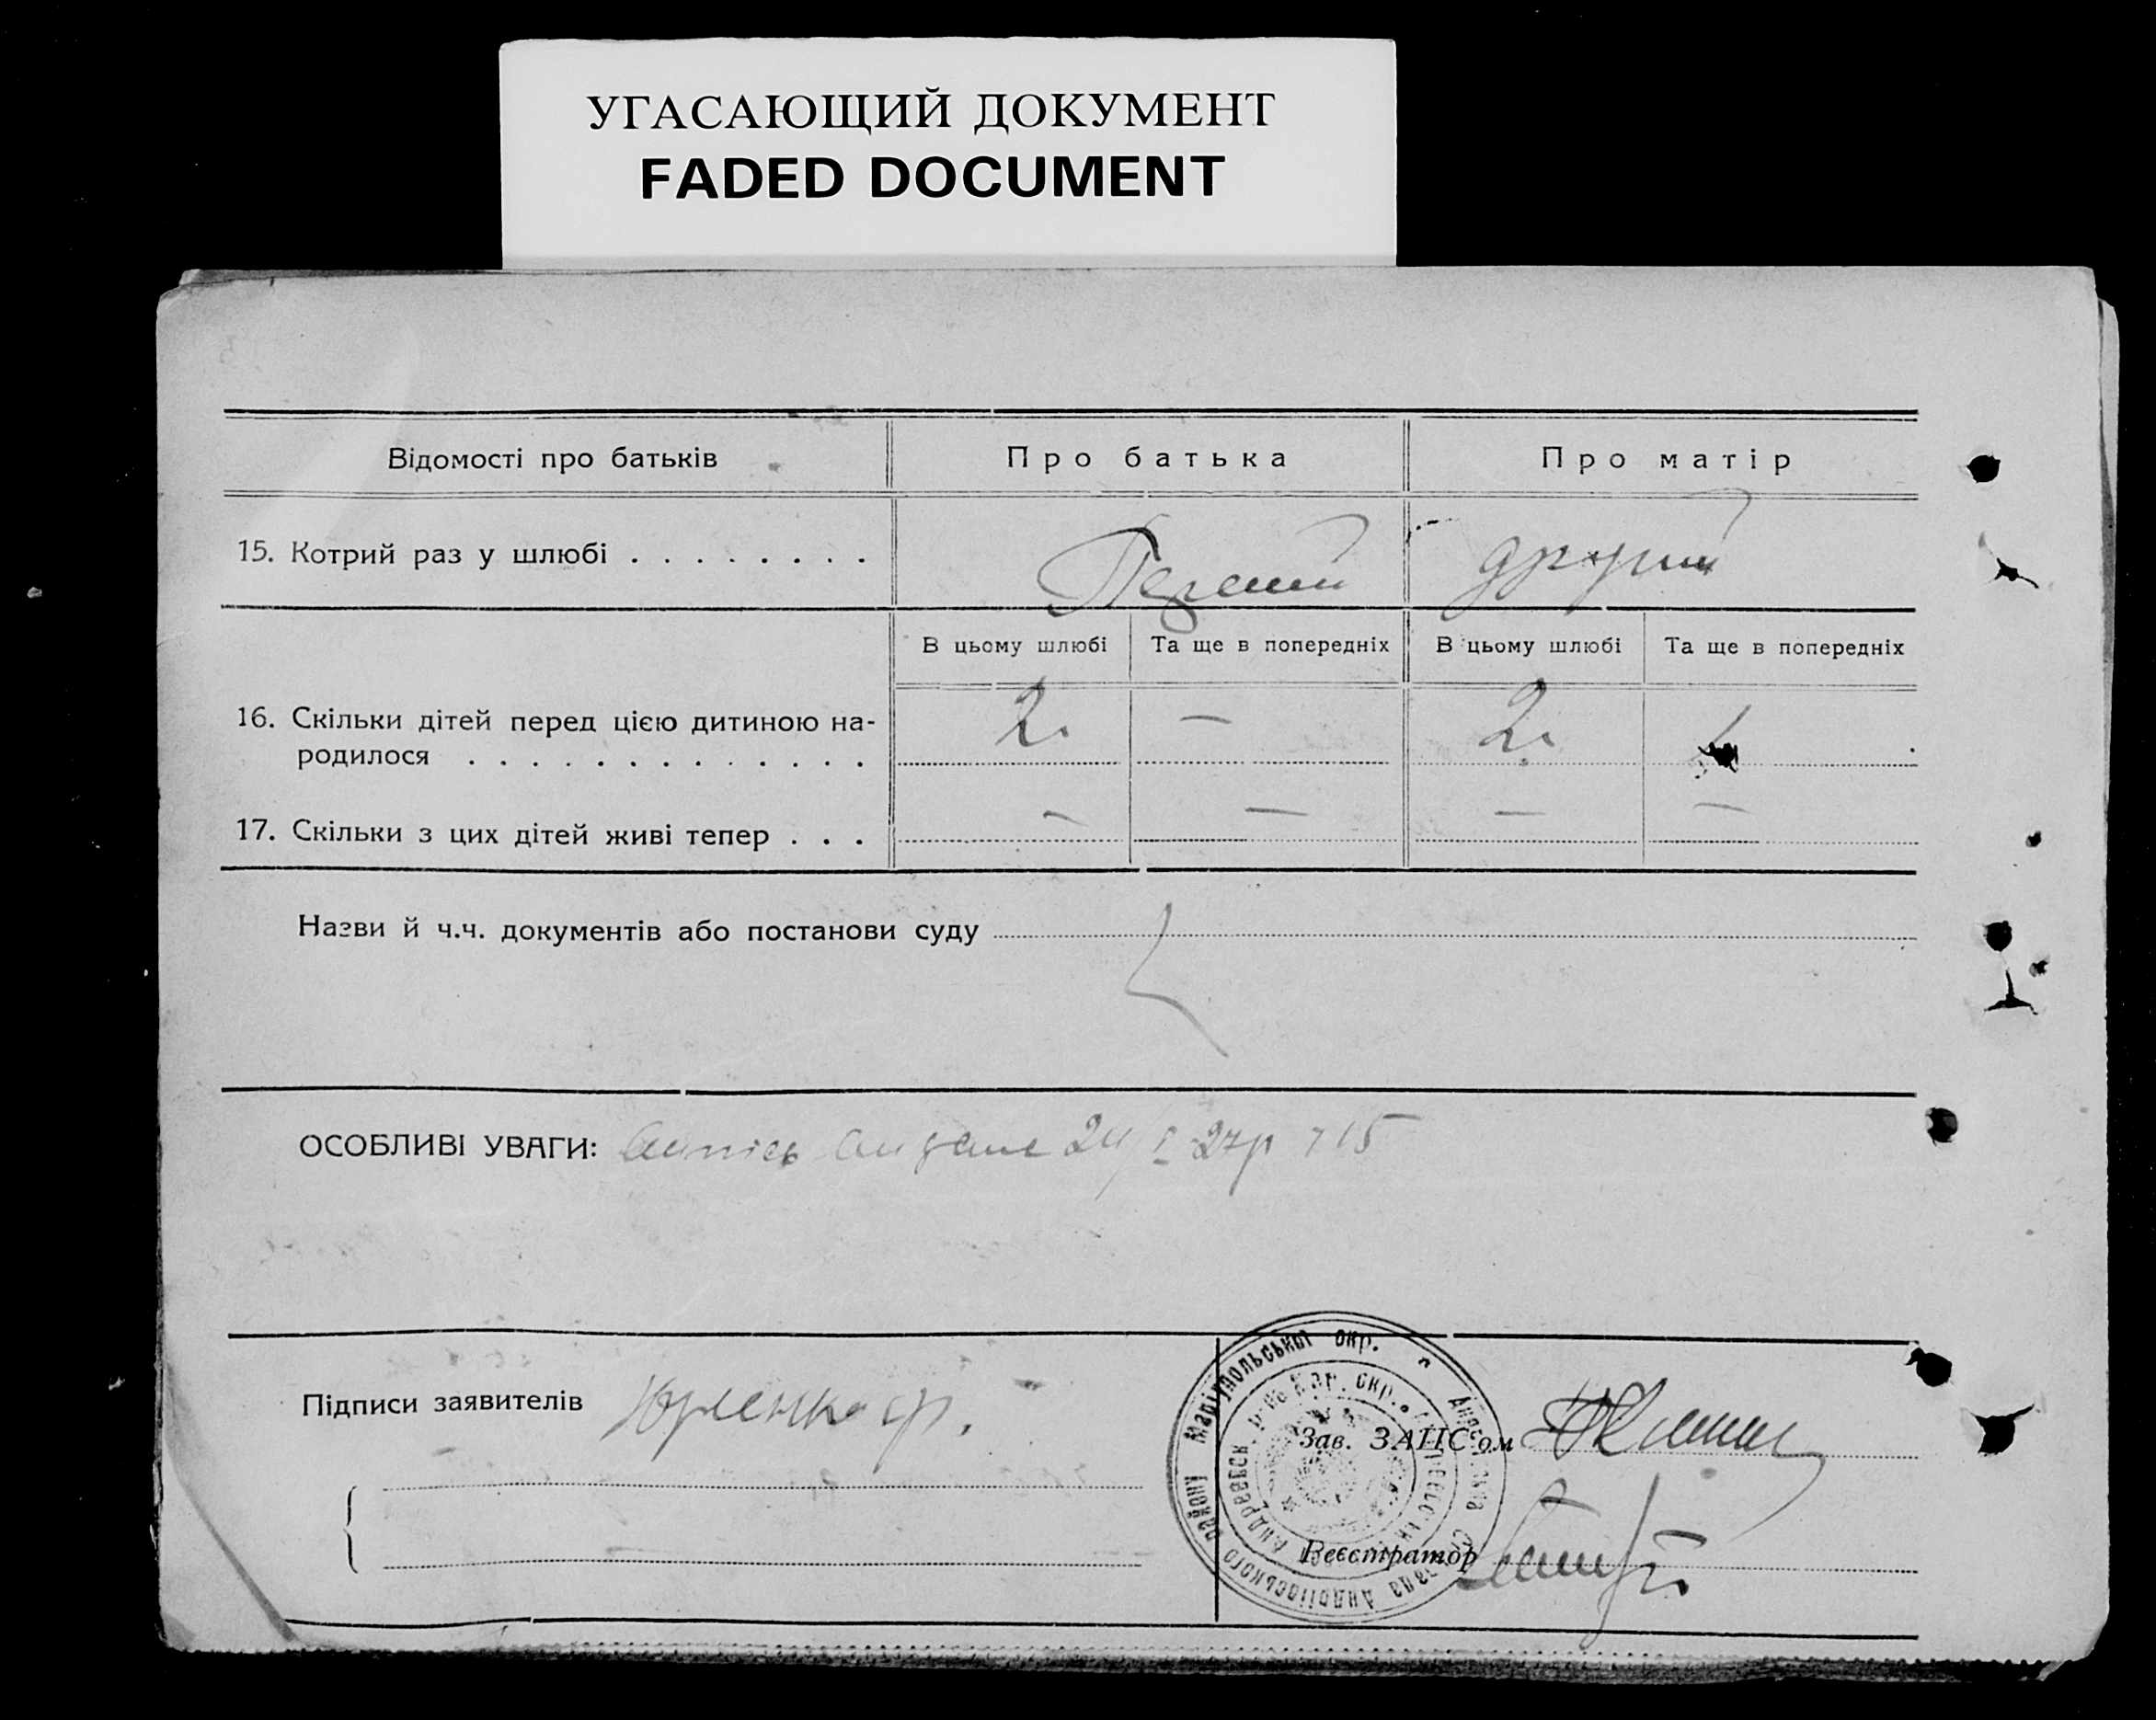 УГАСАЮЩИЙ ДОКУМЕНТ
FADED DOCUMENT
Відомості про батьків
Про батька
Про матір
15. Котрий раз у шлюбі . . . . . . . .
Перший
другий
В цьому шлюбі
Та ще в попередніх
В цьому шлюбі
Та ще в попередніх
16. Скільки дітей перед цією дитиною на-
родилося . . . . . . . . . . . . .
2.
—
2.
17. Скільки з цих дітей живі тепер . . .
—
—
—
—
Назви й ч.ч. документів або постанови суду
ОСОБЛИВІ УВАГИ: 24/I 27р 715
Підписи заявителів
Зав. ЗАГС'ом
Реєстратор
Маріупольської окр.
району